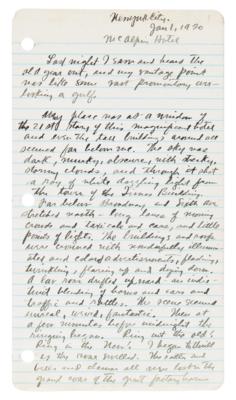 New York City.
Jan 1, 1920
McAlpin Hotel
Last night I saw and heard the
old year out, and my vantage point
was like some vast promontory over-
looking a gulf.
My place was at a window of
the 21st story of this magnificent hotel
and even the tall buildings around me
seemed far below me. The sky was
dark, murky, obscure, with dusky,
stormy clouds, and through it shot
a ray of white light from
the tower of the Times Building.
Far below Broadway and Sixth ave
stretched north - long lanes of moving
crowds and taxicabs and cars, and little
points of lights. The buildings and roofs
were covered with resplendently illumin-
ated and colored advertisements, flashing,
twinkling, flaring up and dying down.
A low roar drifted upward - an inde-
finite blending of horns and cars and
traffic and rattles. The scene seemed
unreal, weird, fantastic. Then at
a few minutes before midnight the
ringing began. Ring out the old!
Ring in the New! I began to thrill
as the roar swelled. The rattles and
bells and clamor all were lost in the
grand roar of the great factory horns